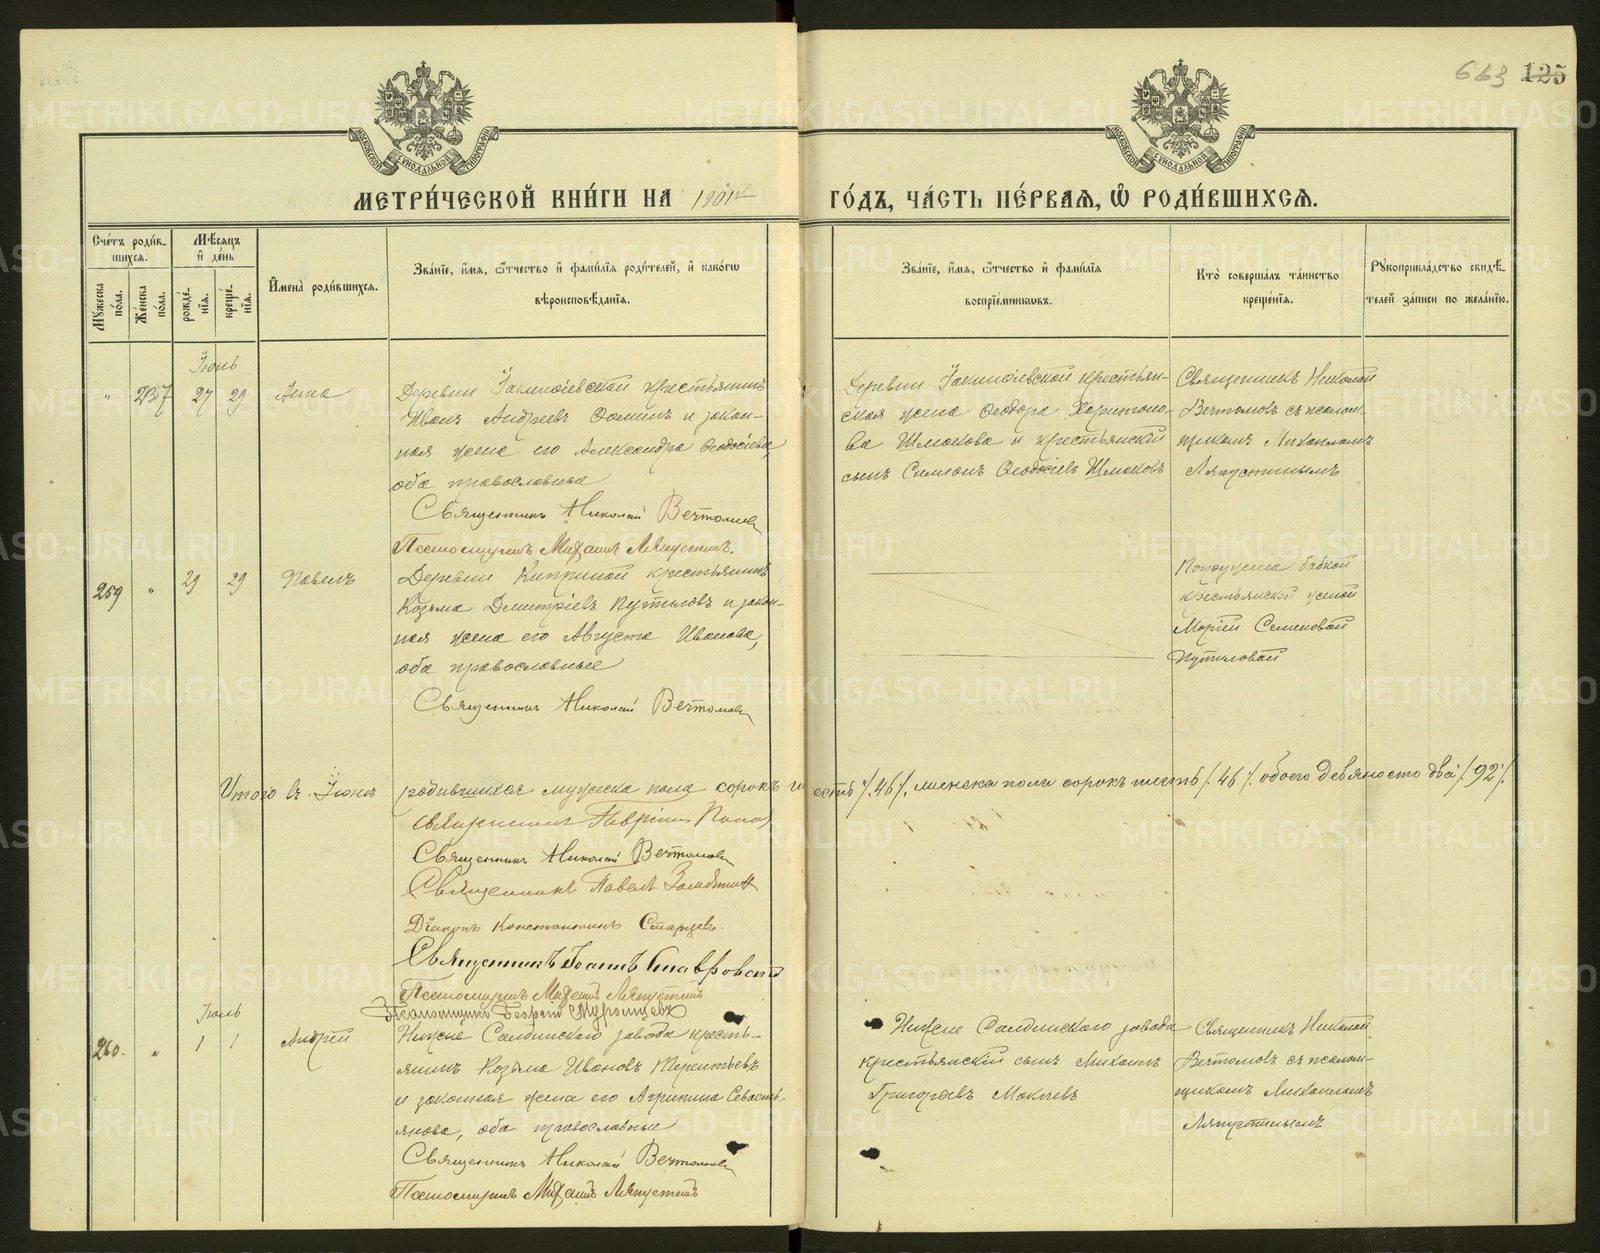 663 125
МЕТРИ́ЧЕСКОЙ КНИ́ГИ НА 1901й ГО́ДЪ, ЧА́СТЬ ПЕ́РВАѦ, Ѿ РОДИ́ВШИХСѦ.
Сче́тъ роди́в-
шихсѧ.
Мꙋ́жеска по́ла.
Же́нска по́ла.
Мѣ́сѧцъ и҆ де́нь
рожде́-нїѧ.
креще́-нїѧ.
И҆мена̀ роди́вшихсѧ.
Зва́нїе, и҆́мѧ, ѻ҆́тчество и҆ фами́лїѧ роди́телей, и҆ како́гѡ
вѣроисповѣ́данїѧ.
Зва́нїе, и҆́мѧ, ѻ҆́тчество и҆ фами́лїѧ
воспрїе́мникѡвъ.
Кто̀ соверша́лъ та́инство
креще́нїѧ.
Рꙋкоприкла́дство свидѣ́-
телей за́писи по жела́нїю.
Іюнь
" 237 27 29 Анна
Деревни Іакинѳіевской крестьянинъ
Иванъ Андреевъ Ѳоминъ и закон-
ная жена его Александра Ѳеодосіева,
оба православные
Священникъ Николай Вечтомовъ
Псаломщикъ Михаилъ Ляпустинъ.
Деревни Іакинѳіевской крестьян-
ская жена Ѳеодора Харитоно-
ва Шмакова и крестьянскій
сынъ Симеонъ Ѳеодосіевъ Шмаковъ
Священникъ Николай
Вечтомовъ съ псалом-
щикомъ Михаиломъ
Ляпустинымъ
259 " 29 29 Павелъ
Деревни Киприной крестьянинъ
Козьма Димитріевъ Путиловъ и закон-
ная жена его Августа Иванова,
оба православные
Священникъ Николай Вечтомовъ
Погружена бабкой
крестьянской женой
Маріей Семеновой
Путиловой
Итого въ Іюнѣ родившихся мужеска пола сорокъ шесть /.46/. женска пола сорокъ шесть /.46/. обоего девяносто два /.92/.
Священникъ Гавріилъ Поповъ
Священникъ Николай Вечтомовъ
Священникъ Павелъ Замятинъ
Діаконъ Константинъ Старцевъ.
Священникъ Іоаннъ Ставровскій
Псаломщикъ Михаилъ Ляпустинъ
Псаломщикъ Георгій Муромцевъ
Іюль
260. " 1 1 Андрей
Нижне-Салдинскаго завода кресть-
янинъ Козьма Ивановъ Терентьевъ
и законная жена его Агрипина Севасть-
янова, оба православные
Священникъ Николай Вечтомовъ
Псаломщикъ Михаилъ Ляпустинъ
Нижне Салдинскаго завода
крестьянскій сынъ Михаилъ
Григорьевъ Мокеевъ
Священникъ Николай
Вечтомовъ съ псалом-
щикомъ Михаиломъ
Ляпустинымъ
METRIKI.GASO-URAL.RU